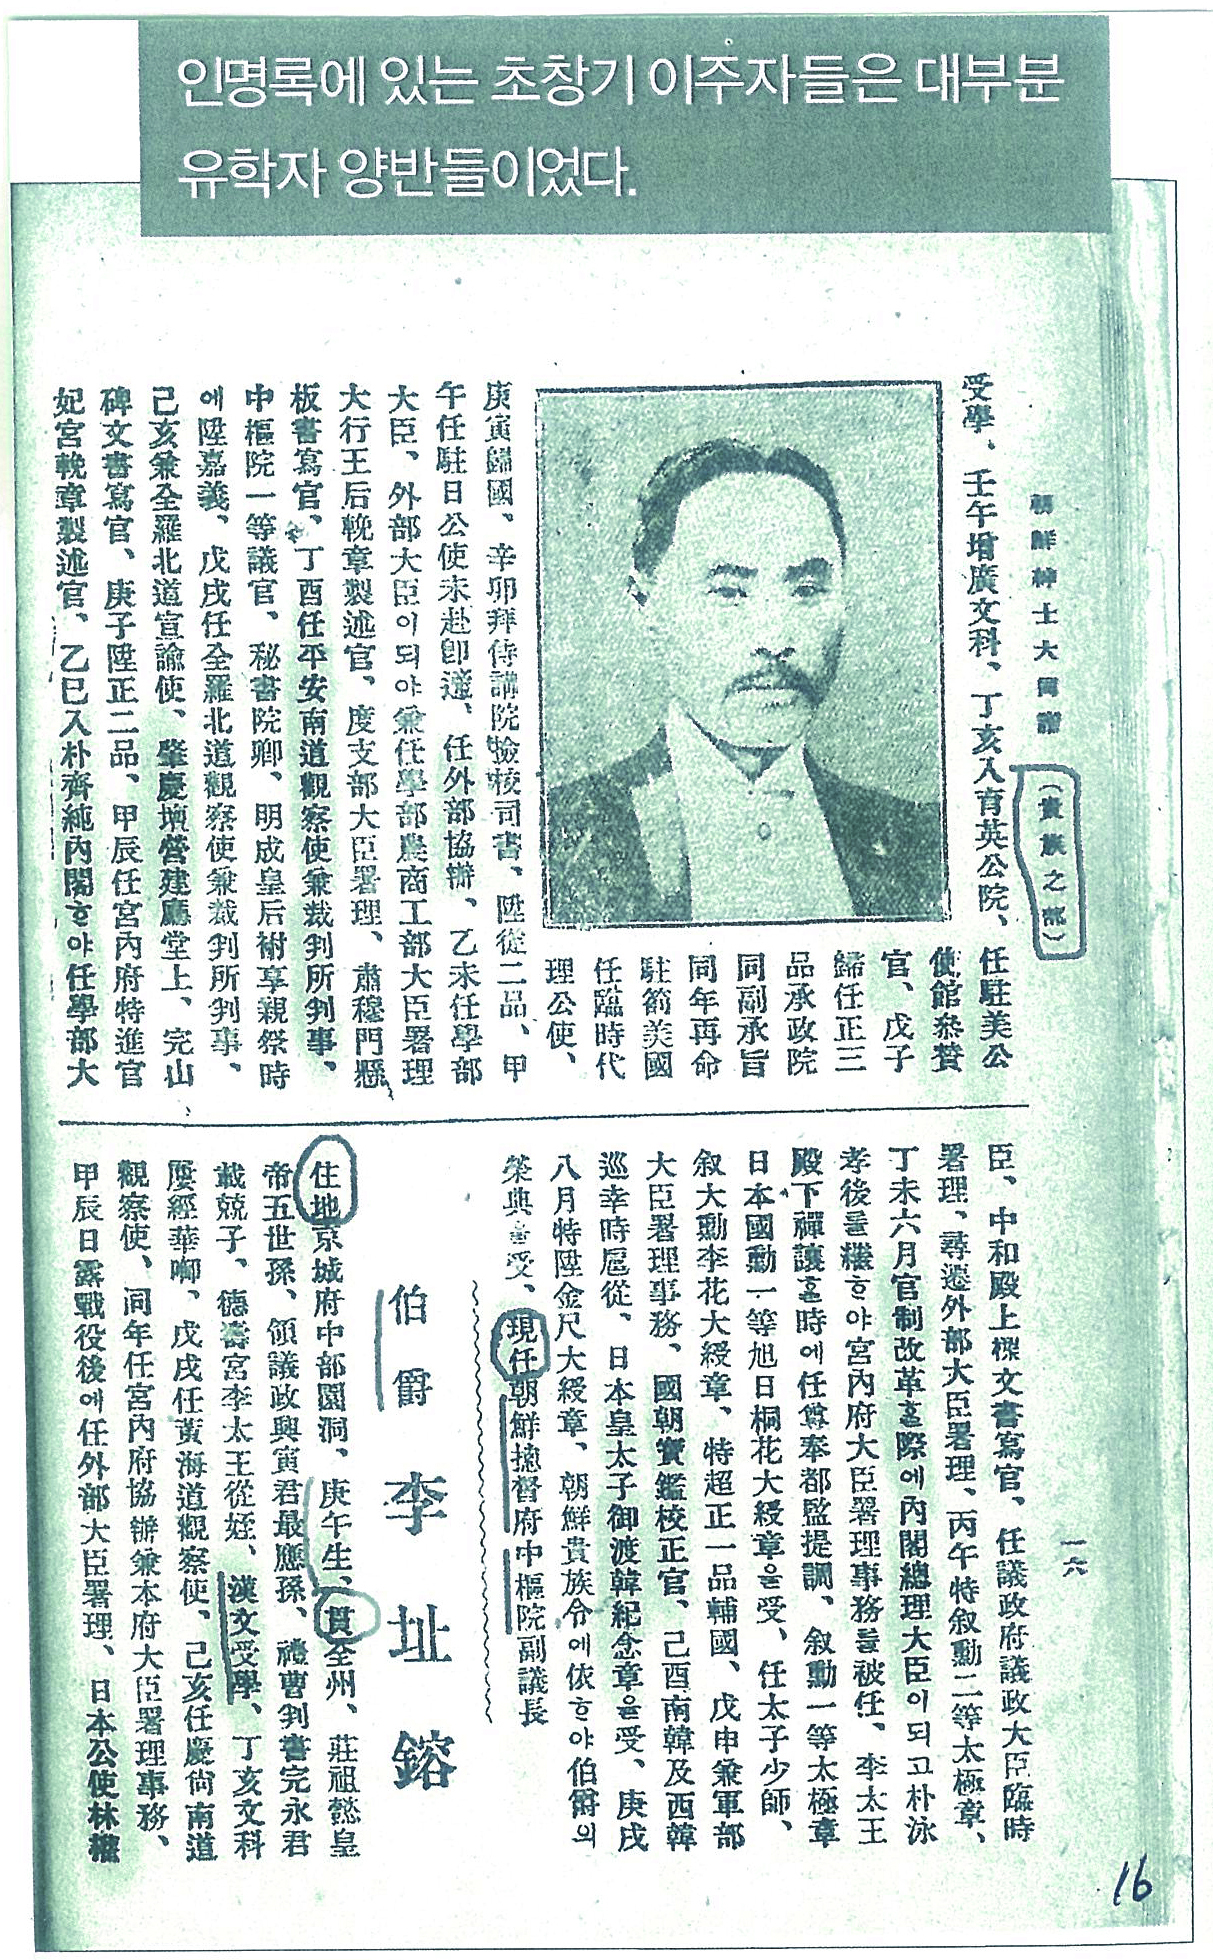 인명록에 있는 초창기 이주자들은 대부분
유학자 양반들이었다.
朝鮮紳士大同譜
(貴族之部)
一六
受學、壬午增廣文科、丁亥入育英公院、任駐美公
使館參贊
官、戊子
歸任正三
品承政院
同副承旨
同年再命
駐箚美國
任臨時代
理公使、
庚寅歸國、辛卯拜侍講院檢校司書、陞從二品、甲
午任駐日公使未赴卽遞、任外部協辦、乙未任學部
大臣、外部大臣이되야兼任學部農商工部大臣署理
大行王后輓章製述官、度支部大臣署理、肅穆門懸
板書寫官、丁酉任平安南道觀察使兼裁判所判事、
中樞院一等議官、秘書院卿、明成皇后祔享親祭時
에陞嘉義、戊戌任全羅北道觀察使兼裁判所判事、
己亥兼全羅北道宣諭使、肇慶壇營建廳堂上、完山
碑文書寫官、庚子陞正二品、甲辰任宮內府特進官
妃宮輓章製述官、乙巳入朴齊純內閣ᄒᆞ야任學部大
臣、中和殿上樑文書寫官、任議政府議政大臣臨時
署理、尋遷外部大臣署理、丙午特叙勳二等太極章、
丁未六月官制改革ᄒᆞᆯ際에內閣總理大臣이되고朴泳
孝後를繼ᄒᆞ야宮內府大臣署理事務를被任、李太王
殿下禪讓ᄒᆞᆯ時에任尊奉都監提調、叙勳一等太極章
日本國勳一等旭日桐花大綬章을受、任太子少師、
叙大勳李花大綬章、特超正一品輔國、戊申兼軍部
大臣署理事務、國朝寶鑑校正官、己酉南韓及西韓
巡幸時扈從、日本皇太子御渡韓紀念章을受、庚戌
八月特陞金尺大綬章、朝鮮貴族令에依ᄒᆞ야伯爵의
榮典을受、現任朝鮮總督府中樞院副議長
伯爵 李址鎔
住地京城府中部園洞、庚午生、貫全州、莊祖懿皇
帝五世孫、領議政興寅君最應孫、禮曹判書完永君
載兢子、德壽宮李太王從姪、漢文受學、丁亥文科
屢經華啣、戊戌任黃海道觀察使、己亥任慶尙南道
觀察使、同年任宮內府協辦兼本府大臣署理事務、
甲辰日露戰役後에任外部大臣署理、日本公使林權
16